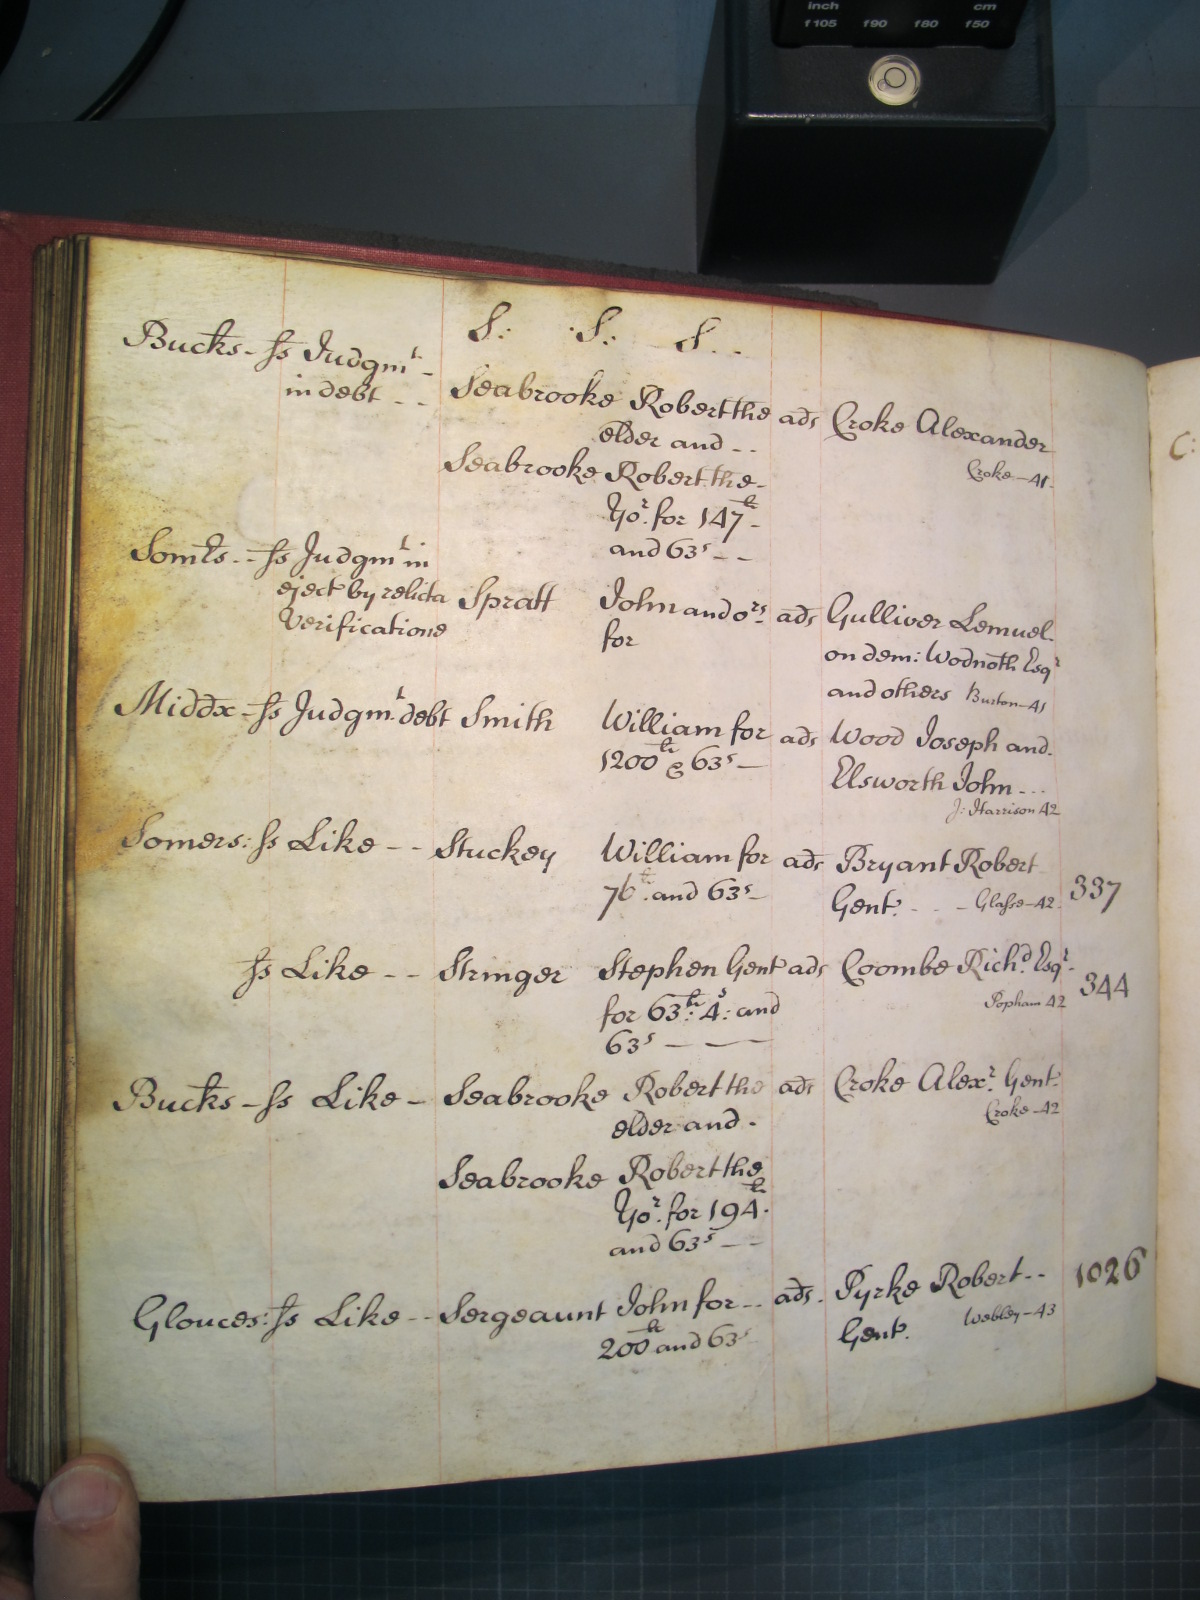 inch cm
f105 f90 f80 f50
S: S: S..
Bucks - ss Judgmt - in debt - - Seabrooke Robert the elder and - - ads Croke Alexander
Croke - 41.
Seabrooke Robert the - Yor. for 147li - and 63s - -
Somts - - ss Judgmt in eject by relicta Verificatione Spratt John and ors for ads Gulliver Lemuel. on dem: Wodnoth Esqr and others Burton - 41
Middx - ss Judgmt debt Smith William for 1200li & 63s - ads Wood Joseph and. Elsworth John - - -
J: Harrison 42
Somers: ss Like - - Stuckey William for 76li. and 63s - ads Bryant Robert Gent. - - - Glasse - 42. 337
ss Like - - Stringer Stephen Gent for 63li: 4s: and 63s - - - ads Coombe Richd. Esqr. 344
Popham 42
Bucks - ss Like - Seabrooke Robert the elder and . ads Croke Alexr. Gent.
Croke - 42
Seabrooke Robert the Yor. for 194li. and 63s - -
Glouces: ss Like - - Sergeaunt John for - - 200li and 63s ads. Pyrke Robert - - Gent. Webley - 43 1026
C: